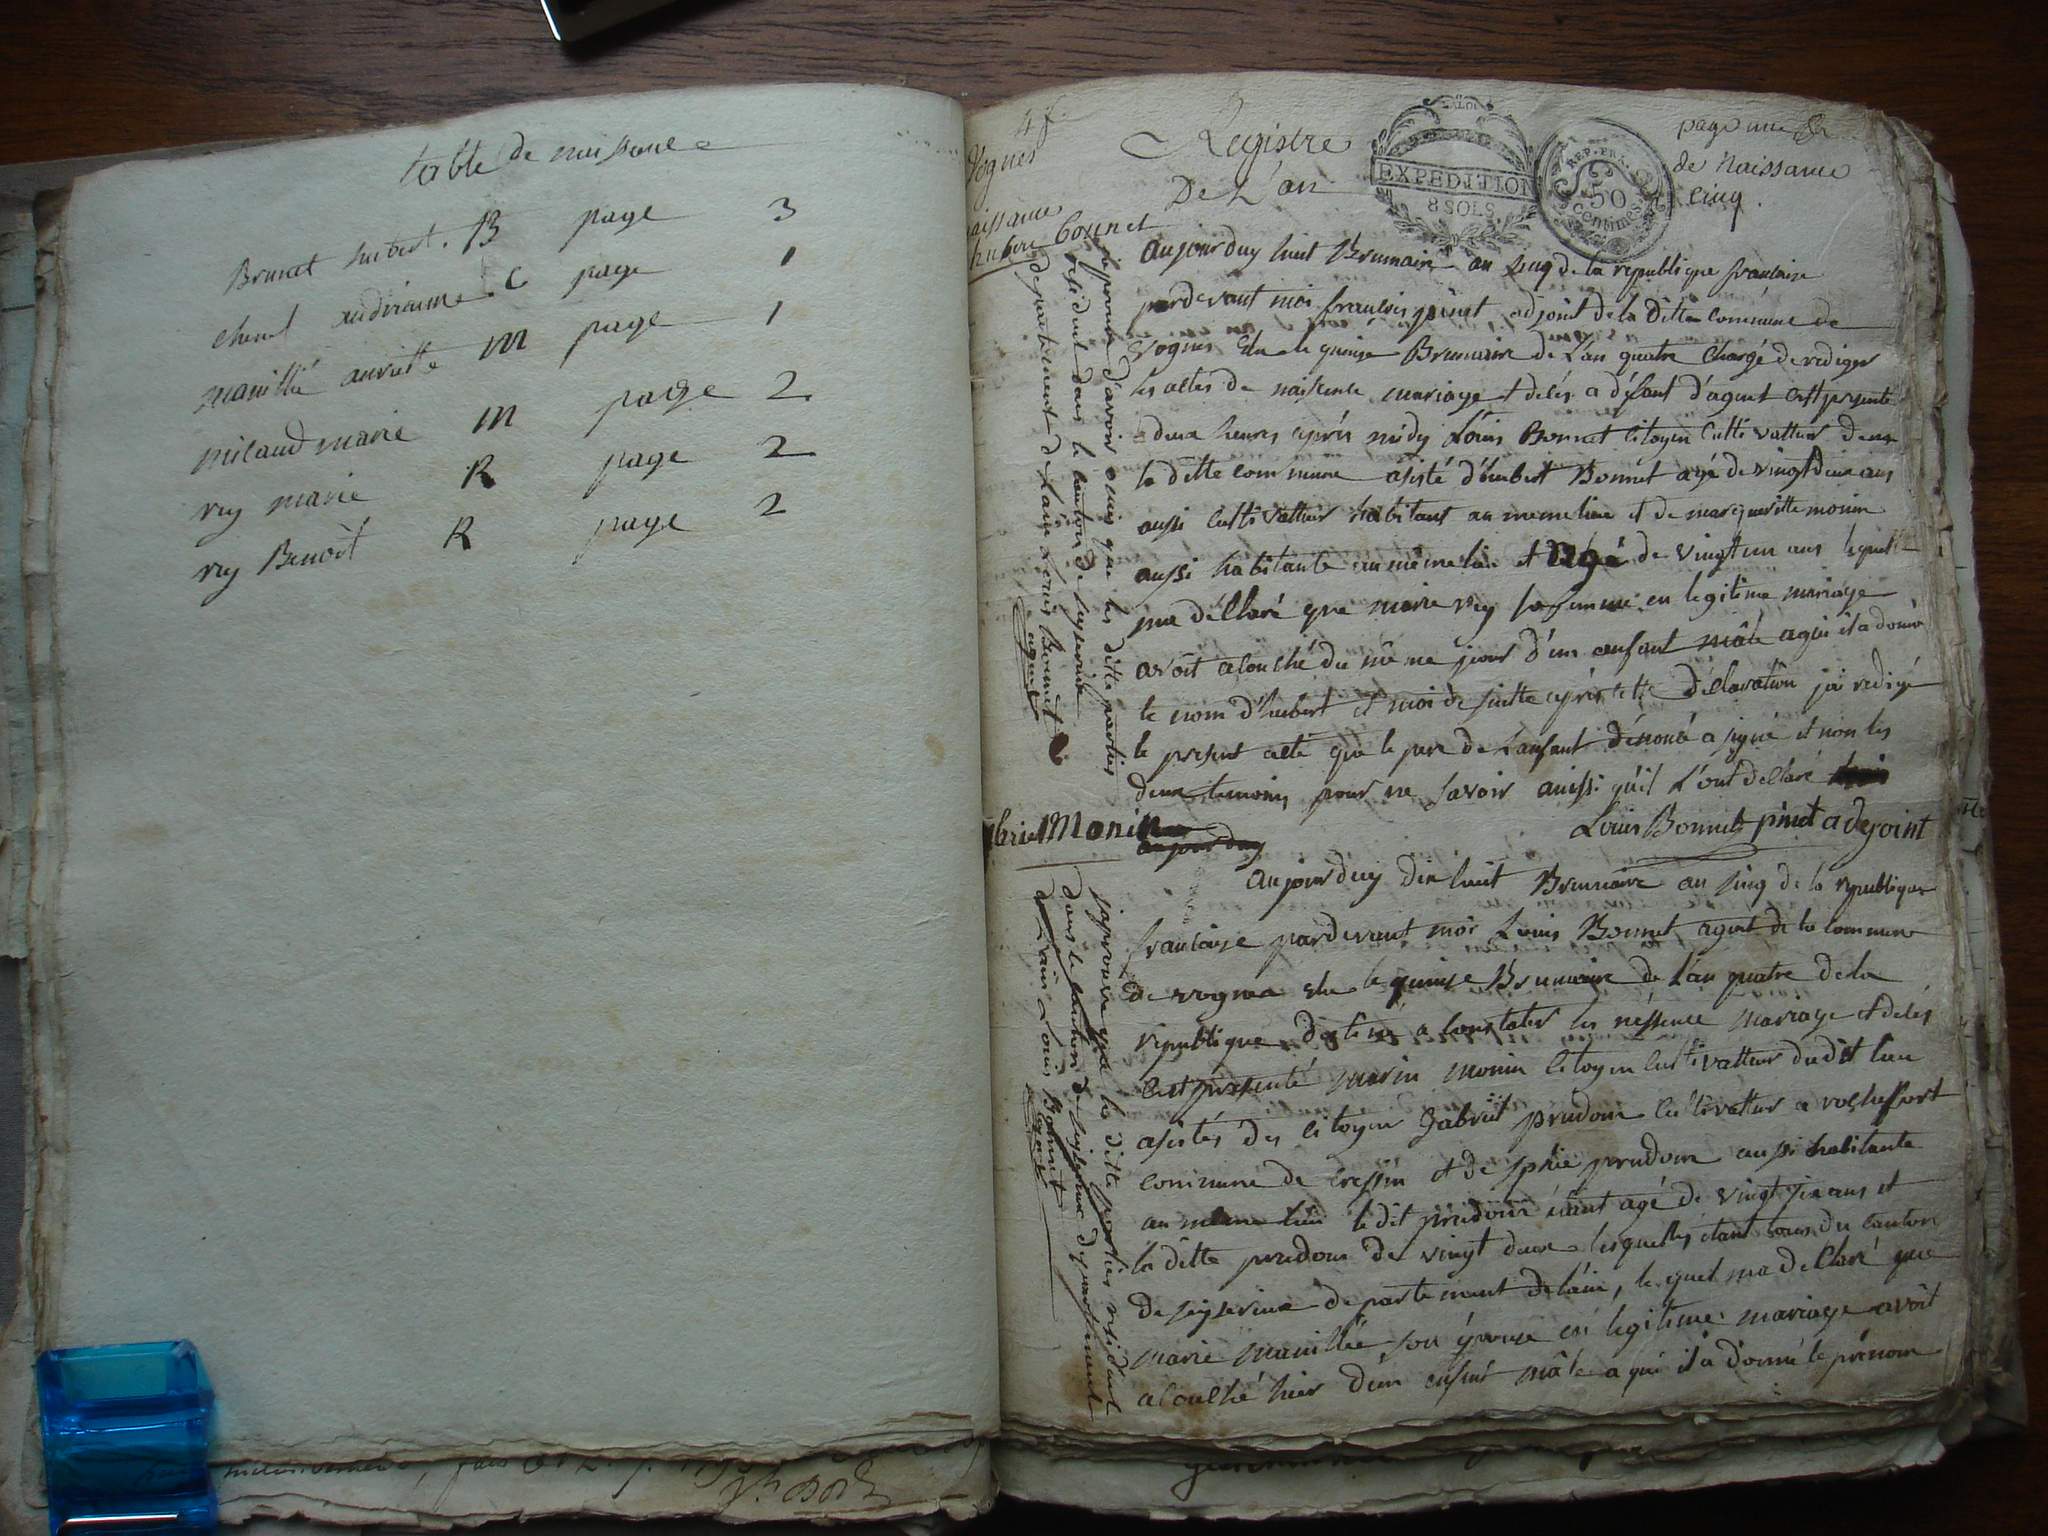 table de naissance
Brunet huibert. B page 3
chenel andrienne C page 1
manillié anriette M page 1
milaud marie M page 2
rey marie R page 2
rey Benoit R page 2
Vognes
Registre
De L'an
page une
de Naissance
cinq.
EXPEDITION
8 SOLS
REP. FRA.
50
centimes
naissance
hubert Bonnet
aujourduy huit Brumaire an sinq de la republique francaise
pardevant moi francois pinet adjoint de la ditte commune de
vognes élu le quinze Brumaire de L'an quatre chargé de rediger
les actes de naissence mariage et délés a défaut d'agent cest presenté
a deux heures après midy Louis Bonnet citoyen cultivatteur dans
la ditte commune asisté d'huibert Bonnet agé de vingt deux ans
aussi cultivatteur habitant au meme lieu et de margueritte monin
aussi habitante au même lieu et agé de vingt un ans lequel
ma déllaré que marie rey sa femme en legitime mariage
avoit acouché du même jour d'un anfant mâle aqui il a donné
le nom d'huibert et moi de suitte après cette déllaration jai redigé
le present acte que le pere de L'anfant dénomé a signé et non les
deux temoins pour ne savoir ainssi qu'il L'ont dellaré
Louis Bonnet pinet adejoint
japrouve d'avoir omis que les ditte parties
résident dans le canton de seyserieux
département de l'ain Louis Bonnet
agent
Monin
aujourduy
aujourduy dix huit Brumaire an sinq de la republique
francaise pardevant moi Louis Bonnet agent de la commune
de vognes élu le quinze Brumaire de L'an quatre de la
republique destiné a constater les nessence mariage et délés
cest presenté marin monin citoyen cultivatteur dudit lieu
asistés des citoyen Gabriel prudom cultivatteur a rocheffort
commune de cressin et de prudom aussi habitante
au même lieu le dit prudom étant agé de vingt six ans et
la ditte prudom de vingt deux lesquelles étant tous du canton
de seyserieux departement de l'ain, le quel ma dellaré que
marie manillié son épouse en legitime mariage avoit
acouché hier d'un enfant mâle a qui il a donné le prénom
japrouve que les ditte parties résident
dans le canton de seyserieux département
de l'ain Louis Bonnet
agent